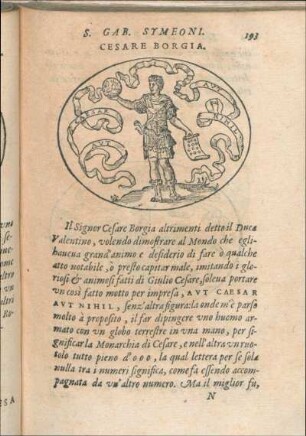 S. GAB. SYMEONI. 193
CESARE BORGIA.
AUT
CAESAR
AUT
NIHIL
Il Signor Cesare Borgia altrimenti detto il Duca
Valentino, volendo dimostrare al Mondo che egli
haueua grand'animo e desiderio di fare ò qualche
atto notabile, ò presto capitar male, imitando i glo-
riosi & animosi fatti di Giulio Cesare, soleua portare
vn così fatto motto per impresa, AVT CAESAR
AVT NIHIL, senz'altra figura: la onde m'è parso
molto à proposito, il far dipingere vno huomo ar-
mato con vn globo terrestre in vna mano, per si-
gnificar la Monarchia di Cesare, e nell'altra vn ruo-
tolo tutto pieno d'o o o, la qual lettera per se sola
nulla tra i numeri significa, come fà essendo accom-
pagnata da vn'altro numero. Ma il miglior fu,
N